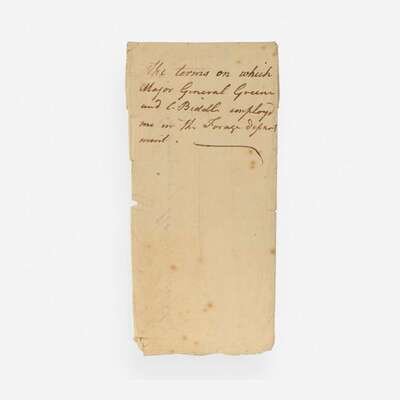 The terms on which
Major General Greene
and C. Biddle employd
me in the Forage depart
ment.